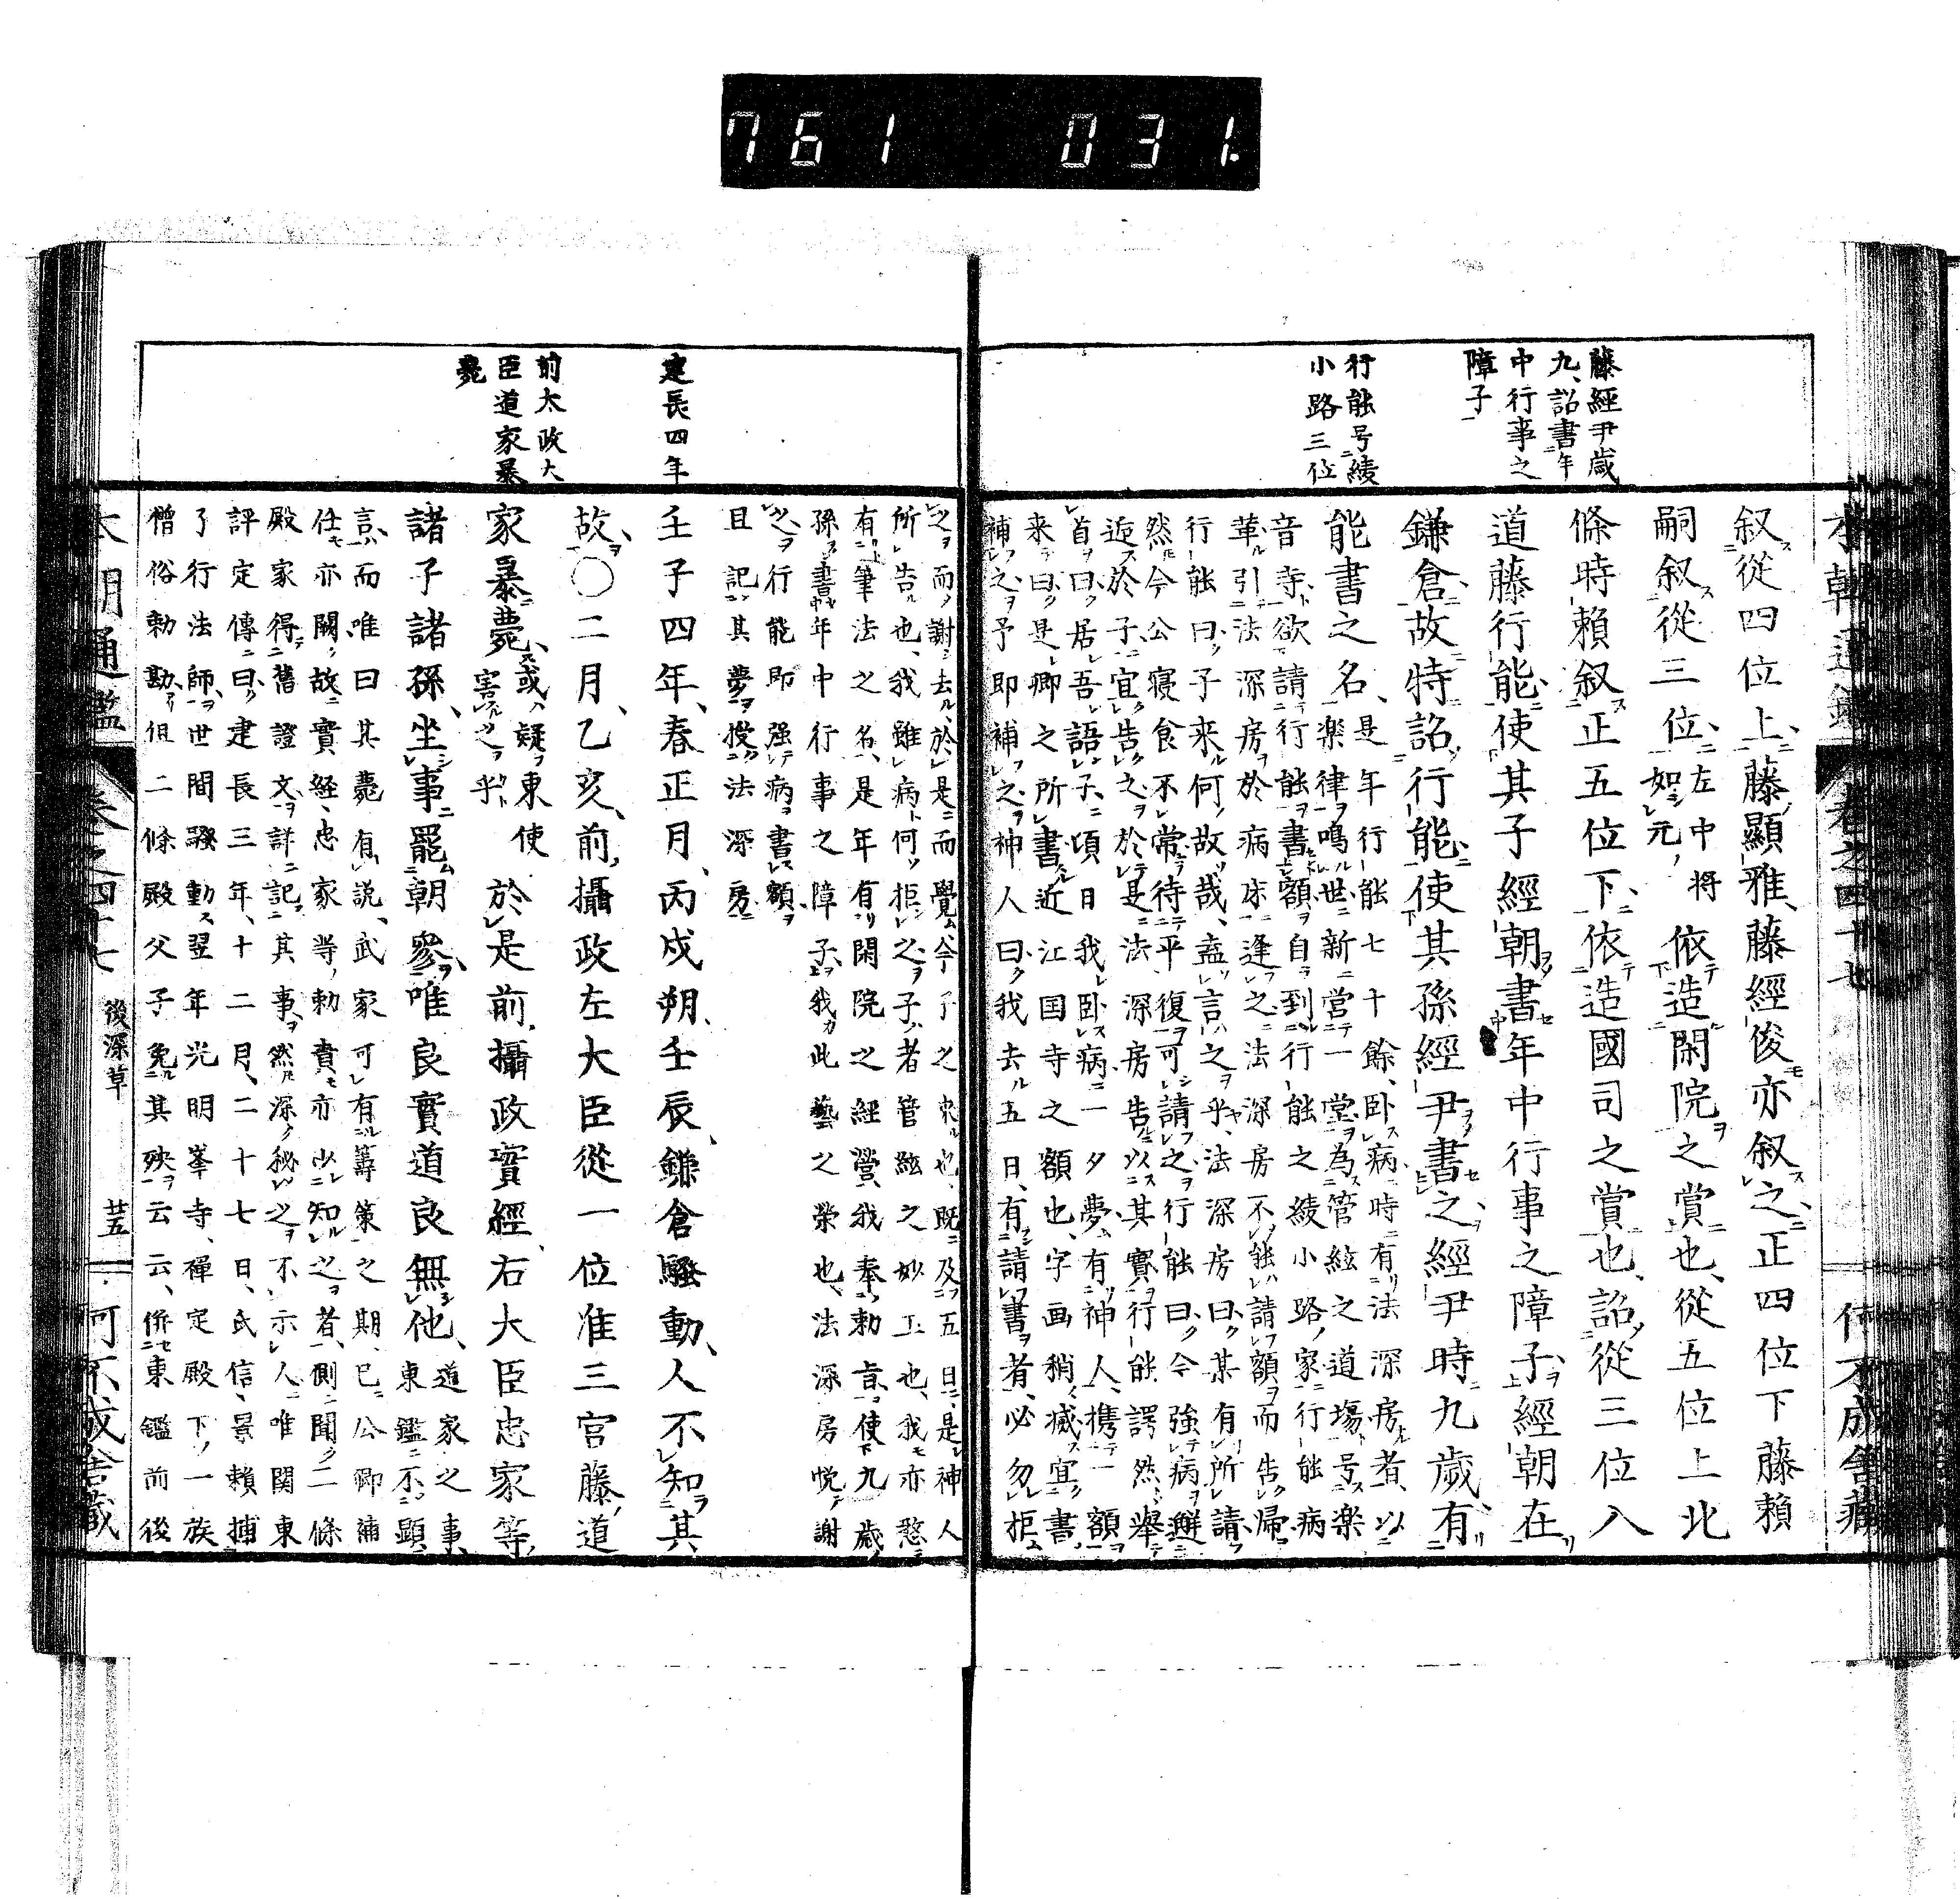 761 031.
藤經尹歳
九、詔書年
中行事之
障子
行能号綾
小路三位
叙從四位上、藤顯雅、藤經俊亦叙之、正四位下藤賴
嗣叙從三位、左中將如元、依造閑院之賞也、從五位上北
條時賴叙正五位下、依造國司之賞也、詔從三位八
道藤行能、使其子經朝書年中行事之障子、經朝在
鎌倉、故特詔行能、使其孫經尹書之、經尹時九歲、有
能書之名、是年行能七十餘、卧病、時有法深房者、以
樂律鳴世、新營一堂、為管絃之道場、号楽
音寺、欲請行能書額、自到行能之綾小路家、行能病
革、引法深房於病床逢之、法深房不能請額而告歸、
行能曰、子来何故哉、盍言之乎、法深房曰、某有所請、
然今公寢食不常、待平復可請之、行能曰、今強病遲
逅於子、宜告之、於是法深房告以其實、行能諤然、舉
首曰、居吾語子、頃日我卧病、一夕夢、有神人、携一額
来曰、是卿之所書近江国寺之額也、字画稍滅、宜書
補之、予即補之、神人曰、我去五日、有請書者、必勿拒
本朝通鑑 卷之四十七 何不成舍藏
建長四年
前太政大
臣道家暴
薨
之而謝去、於是而覺、今子之來也、既及五日、是神人
所告也、我雖病何拒之、子者管絃之妙工也、我亦憗
有筆法之名、是年有閑院之經營、我奉勅旨、使九歲
孫書年中行事之障子、我此藝之榮也、法深房悅謝
之、行能即強病書額、
且記其夢授法深房、
壬子四年、春正月、丙戌朔、壬辰、鎌倉騷動、人不知其
故、〇二月、乙亥、前攝政左大臣從一位准三宮藤道
家暴薨、或疑東使害之乎、於是前攝政實經、右大臣忠家等、
諸子諸孫、坐事罷朝參、唯良實道良無他、道家之事、東鑑不顯
言、而唯曰其薨有説、武家可有籌策之期、已公卿補
任亦闕、故實経、忠家等勅責亦少知之者、側聞二條
殿家得舊證文、詳記其事、然深秘之不示人、唯関東
評定傳曰、建長三年、十二月、二十七日、氏信、景賴捕
了行法師、世間騷動、翌年光明峯寺禪定殿下一族
僧俗勅勘、但二條殿父子免其殃云云、併東鑑前後
本朝通鑑 卷之四十七 後深草 廿五 何不成舍藏